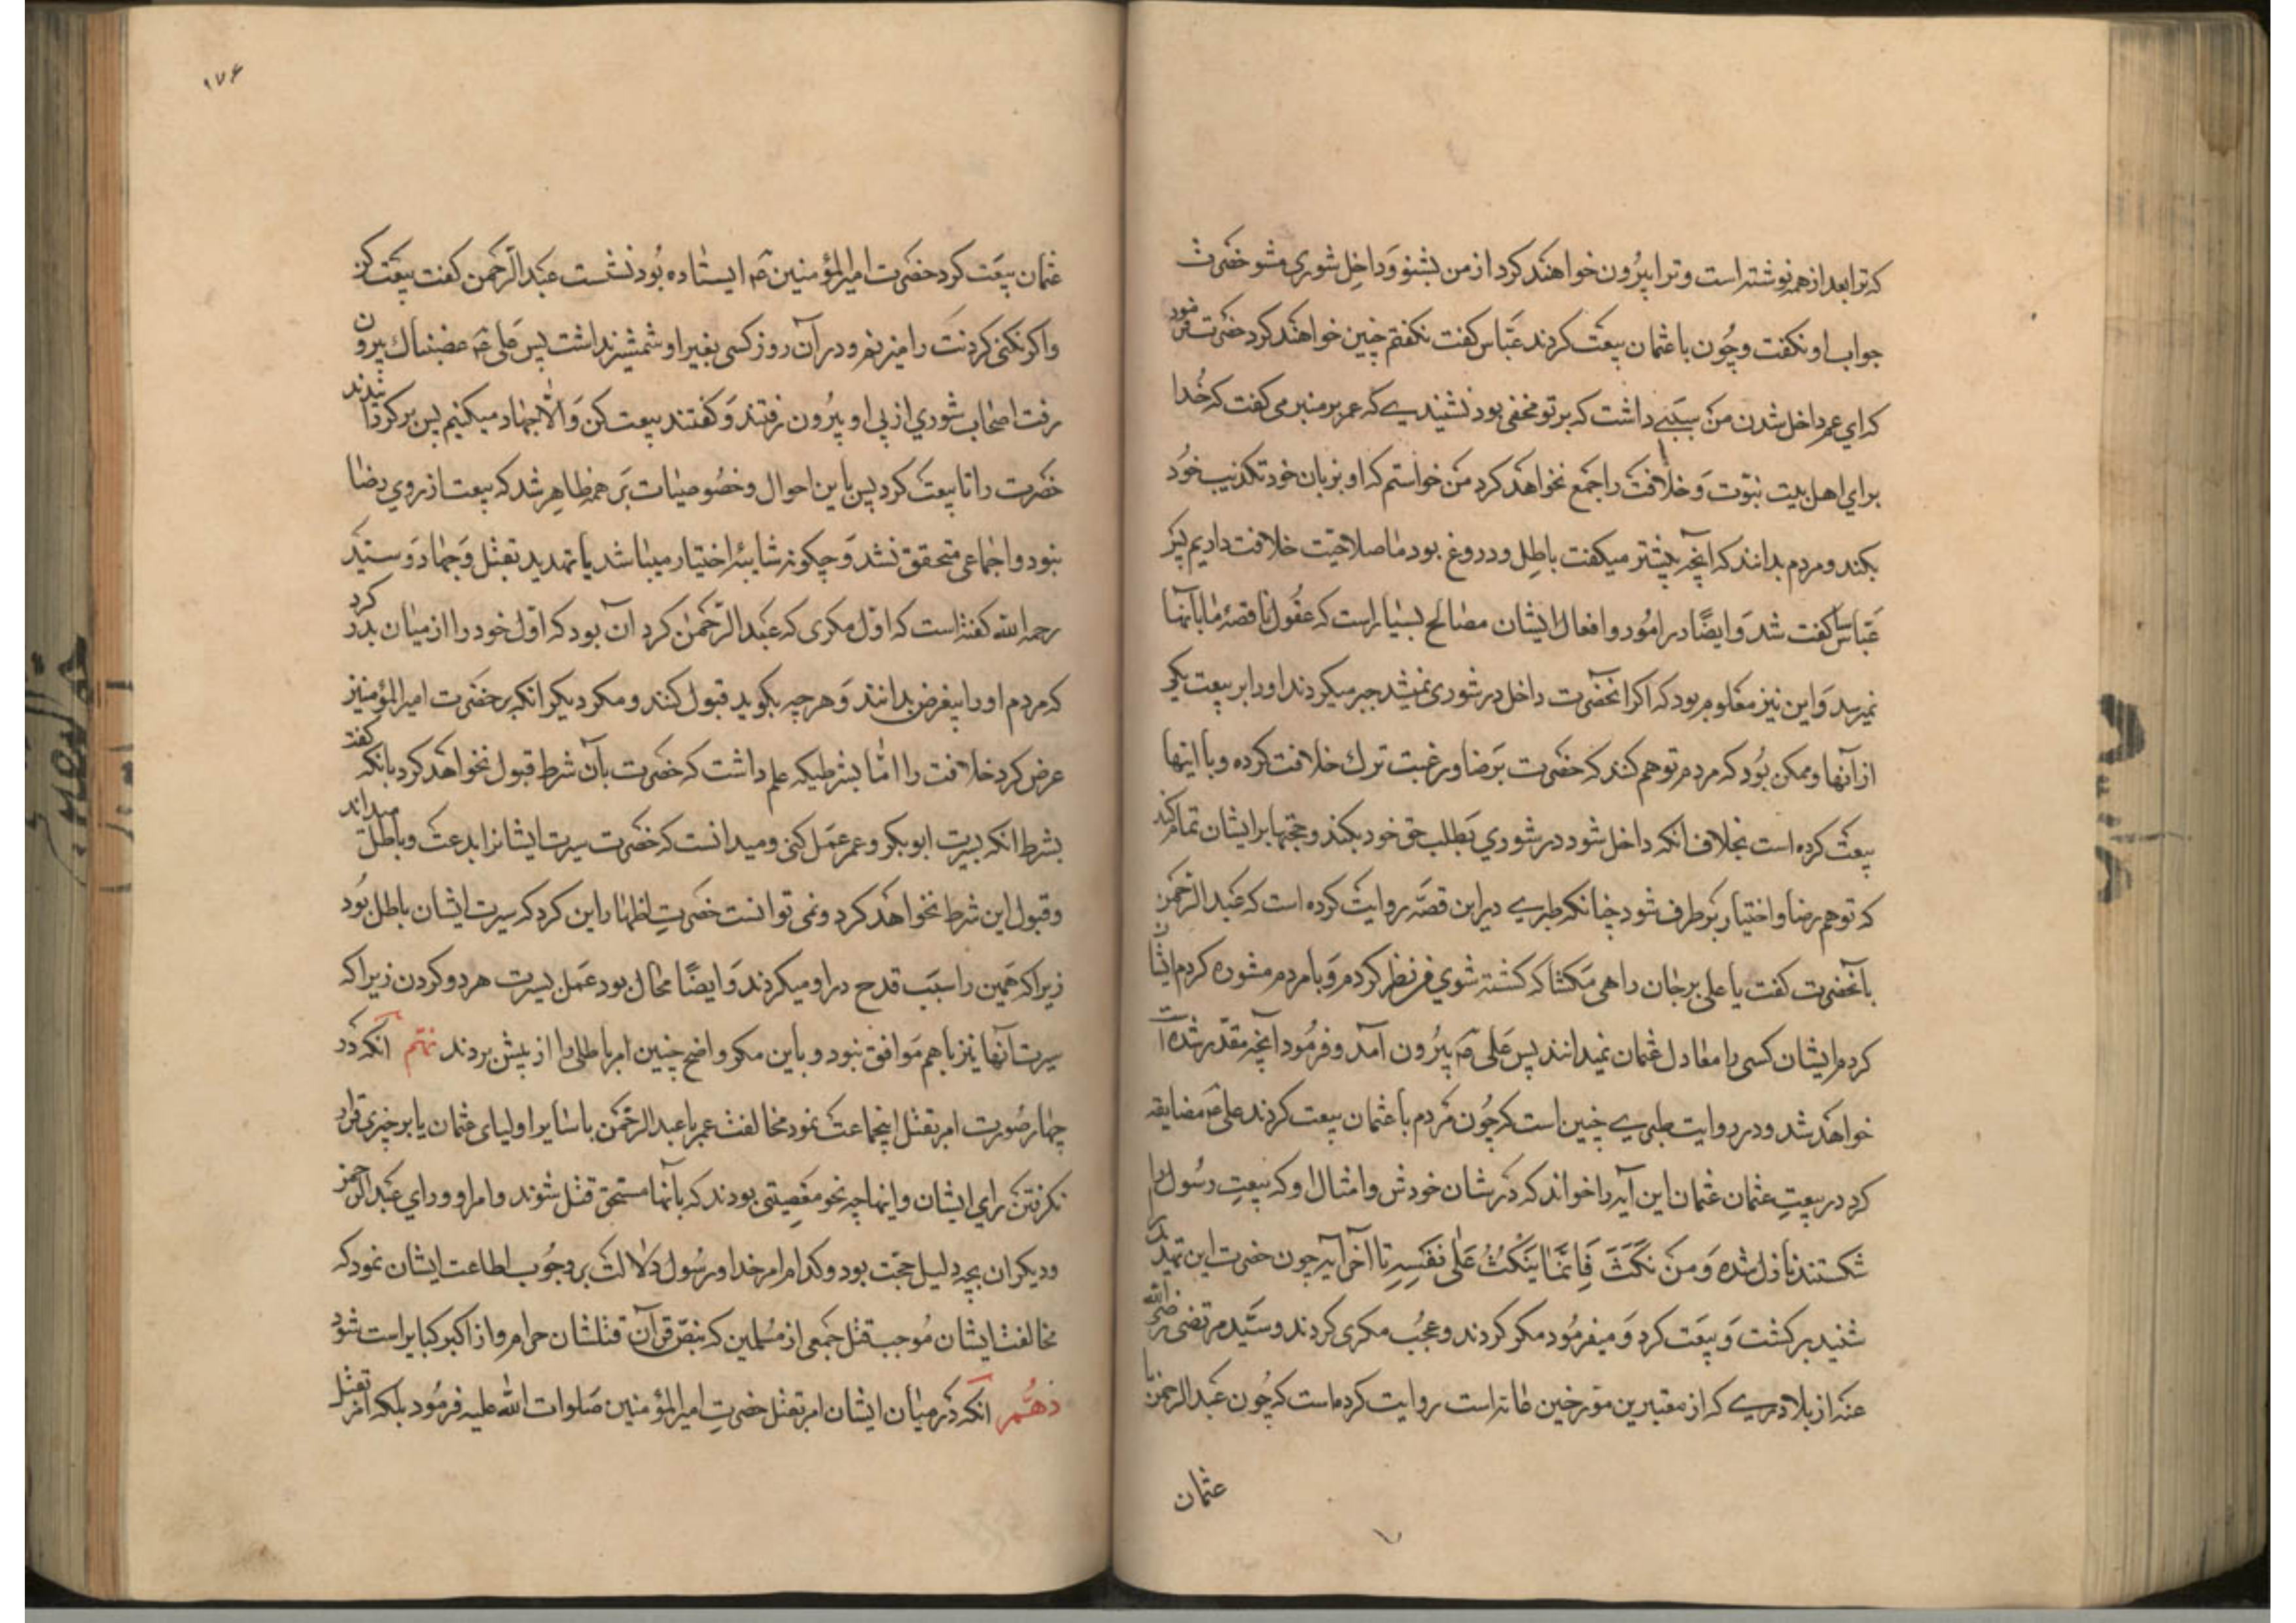 که ترا بعد از همه نوشته است و ترا بیرون خواهند کرد از من بشنو و داخل شوری مشو حضرت
جواب او نکفت و چون با عثمان بیعت کردند عباس کفت نکفتم چنین خواهند کرد حضرت فرمود
که ای عم داخل شدن من سببی داشت که بر تو مخفی بود نشنیدی که عمر بر منبر می کفت که خدا
برای اهل بیت نبوت و خلافت را جمع نخواهد کرد من خواستم که او بزبان خود تکذیب خود
بکند و مردم بدانند که آنچه پیشتر میکفت باطل و دروغ بود ما صلاحیت خلافت داریم پس
عباس ساکت شد و ایضا در امور و افعال ایشان مصالح بسیار است که عقول ناقصهٔ ما بآنها
نمیرسد و این نیز معلوم بود که اکر آنحضرت داخل در شوری نمیشد جبر میکردند او را بر بیعت یکی
از آنها و ممکن بود که مردم توهم کنند که حضرت برضا و رغبت ترك خلافت کرده و با اینها
بیعت کرده است بخلاف آنکه داخل شود در شوری و طلب حق خود بکند و حجتها بر ایشان تمام کند
که توهم رضا و اختیار بر طرف شود چنانکه طبری در این قصه روایت کرده است که عبد الرحمن
بآنحضرت کفت یا علی بر جان راهی مکشا که کشته شوی من نظر کردم و با مردم مشوره کردم ایشان
کردم ایشان کسی را معادل عثمان نمیدانند پس علی ع م بیرون آمد و فرمود آنچه مقدر شده است
خواهد شد و در روایت طبری چنین است که چون مردم با عثمان بیعت کردند علی ع م مضایقه
کرد در بیعت عثمان عثمان این آیه را خواند که در شان خودش و امثال او که بیعت رسول را
شکستند نازل شده وَمَنْ نَكَثَ فَاِنَّمَا يَنْكُثُ عَلٰى نَفْسِهِ تا آخر آیه چون حضرت این تهدید را
شنید برکشت و بیعت کرد و میفرمود مکر کردند و عجب مکری کردند و سید مرتضی رضی الله
عنه از بلادری که از معتبرین مورخین عامه است روایت کرده است که چون عبد الرحمن با
عثمان
۱۷۶
عثمان بیعت کرد حضرت امیر المؤمنین ع م ایستاده بود نشست عبد الرحمن کفت بیعت کن
و اکر نکنی کردنت را میزنم و در آن روز کسی بغیر او شمشیر نداشت پس علی ع م غضبناك بیرون
رفت اصحاب شوری از پی او بیرون رفتند و کفتند بیعت کن و الّا جهاد میکنیم پس برکردانیدند
حضرت را تا بیعت کرد پس باین احوال و خصوصیات بر همه ظاهر شد که بیعت از روی رضا
نبود و اجماعی متحقق نشد و چکونه شایبهٔ اختیار میباشد با تهدید بقتل و جهاد و سید
رحمه الله کفته است که اول مکری که عبد الرحمن کرد آن بود که اول خود را از میان بدر کرد
که مردم او را بیغرض بدانند و هر چه بکوید قبول کنند و مکر دیکر آنکه بر حضرت امیر المؤمنین
عرض کرد خلافت را امّا بشرطیکه علم داشت که حضرت بآن شرط قبول نخواهد کرد بآنکه کفت
بشرط انکه بسیرت ابوبکر و عمر عمل کنی و میدانست که حضرت سیرت ایشانرا بدعت و باطل میداند
و قبول این شرط نخواهد کرد و نمی توانست حضرت اظهار این کرد که سیرت ایشان باطل بود
زیرا که همین را سبب قدح در او میکردند و ایضا محال بود عمل بسیرت هر دو کردن زیرا که
سیرت آنها نیز باهم موافق نبود و باین مکر واضح چنین امر باطلی را از پیش بردند نهم آنکه در
چهار صورت امر بقتل اینجماعت نمود مخالفت عمر با عبد الرحمن با سایر اولیای عثمان یا بر چیزی قرار
نکرفتن رای ایشان و اینها چه نحو معصیتی بودند که بآنها مستحق قتل شوند و امر او و رای عبد الرحمن
و دیکران بچه دلیل حجت بود و کدام امر خدا و رسول دلالت بر وجوب اطاعت ایشان نمود که
مخالفت ایشان موجب قتل جمعی از مسلمین که بنص قرآن قتلشان حرام و از اکبر کبایر است شود
دهم آنکه در میان ایشان امر بقتل حضرت امیر المؤمنین صلوات الله علیه فرمود بلکه امر بقتل